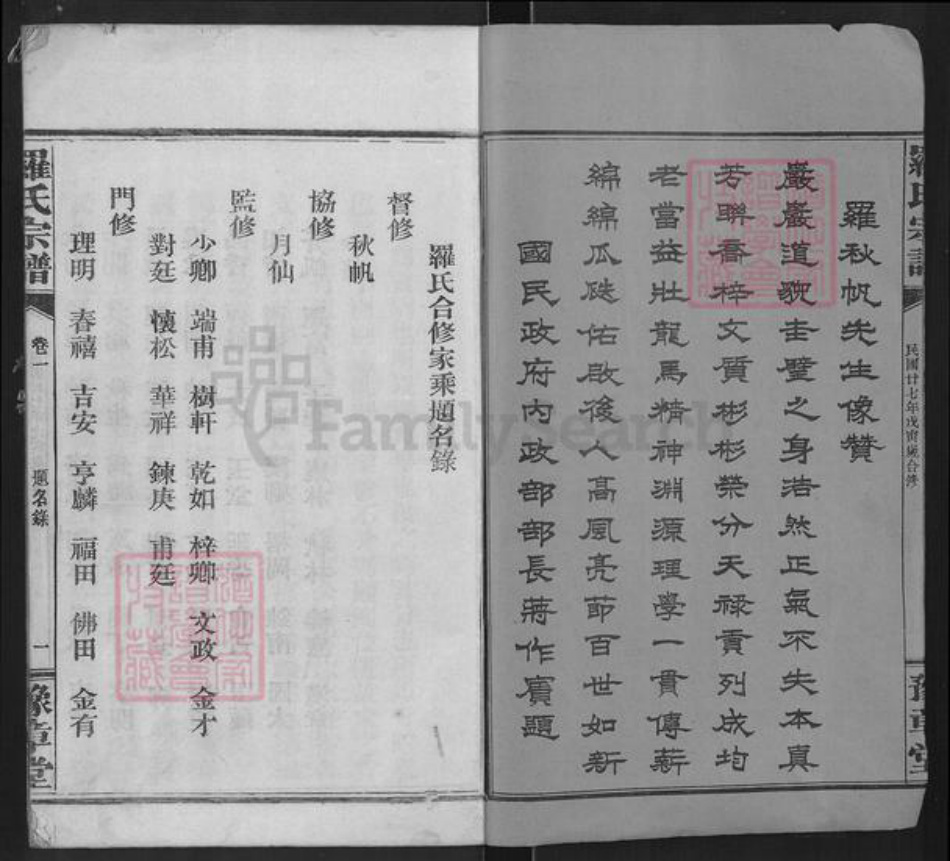 羅氏宗譜
民國廿七年戊寅歲合修
豫章堂
羅秋帆先生像贊
巖巖道貌圭璧之身浩然正氣不失本真
若聯喬梓文質彬彬榮分天祿貢列成均
老當益壯龍馬精神淵源理學一貫傳薪
綿綿瓜瓞佑啟後人高風亮節百世如新
國民政府內政部部長蔣作賓題
羅氏合修家乘題名錄
督修
秋帆
協修
月仙
監修
少卿 端甫 樹軒 乾如 梓卿 文政 金才
對廷 懷松 華祥 鍊庚 甫廷
門修
理明 春禧 吉安 亨麟 福田 佛田 金有
羅氏宗譜
卷一
題名錄
一
豫章堂
FamilySearch